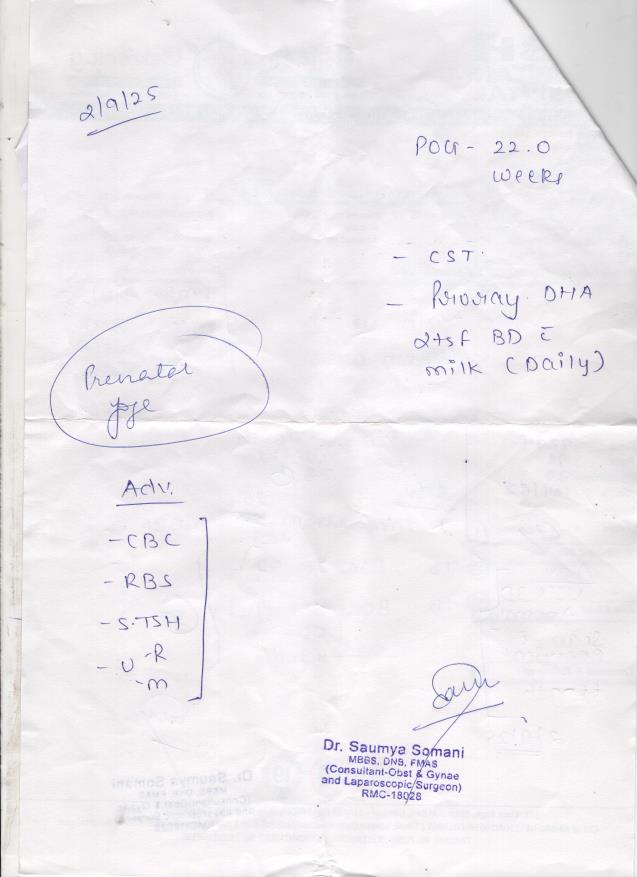 2/9/25
POG - 22.0
weeks
- CST.
- DHA
2tsf BD c̄
milk (Daily)
Prenatal
Adv.
- CBC
- RBS
- S.TSH
- U - R
- m
Dr. Saumya Somani
MBBS, DNB, FMAS
(Consultant-Obst & Gynae
and Laparoscopic Surgeon)
RMC-18028